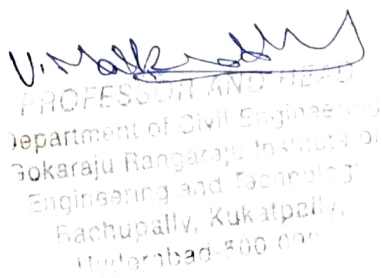 PROFESSOR AND HEAD
Department of Civil Engineering
Gokaraju Rangaraju Institute of
Engineering and Technology
Bachupally, Kukatpally,
Hyderabad-500